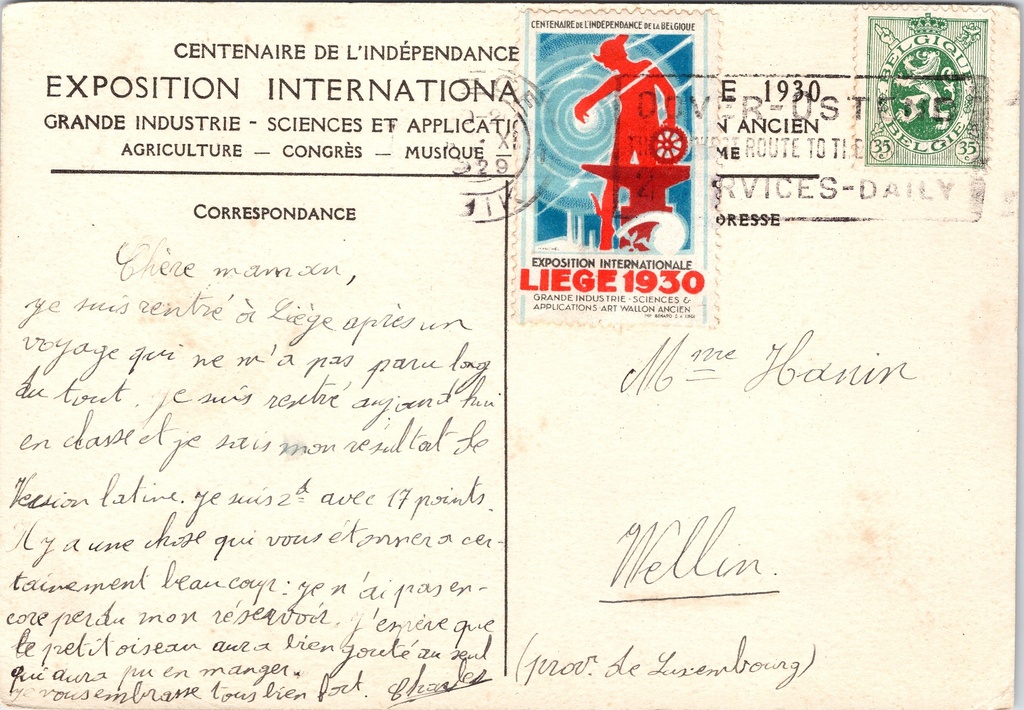 CENTENAIRE DE L'INDÉPENDANCE
EXPOSITION INTERNATIONA
E 1930
GRANDE INDUSTRIE - SCIENCES ET APPLICATI
N ANCIEN
AGRICULTURE — CONGRÈS — MUSIQUE
ME
CORRESPONDANCE
DRESSE
CENTENAIRE DE L'INDÉPENDANCE DE LA BELGIQUE
EXPOSITION INTERNATIONALE
LIEGE 1930
GRANDE INDUSTRIE - SCIENCES &
APPLICATIONS ART WALLON ANCIEN
BELGIQUE
35 35
BELGIE
XI
29
DOVER-OSTENDE
ROUTE TO THE
RVICES-DAILY
Chère maman,
je suis rentré à Liège après un
voyage qui ne m'a pas paru long
du tout. je suis rentré aujourd'hui
en classe et je sais mon résultat de
Version latine. Je suis 2d avec 17 points.
Il y a une chose qui vous étonnera cer-
tainement beaucoup: je n'ai pas en-
core perdu mon réservoir. J'espère que
le petit oiseau aura bien goûté au seul
qui aura pu en manger.
je vous embrasse tous bien fort. Charles
Mme Hanin
Wellin.
(prov. de Luxembourg)